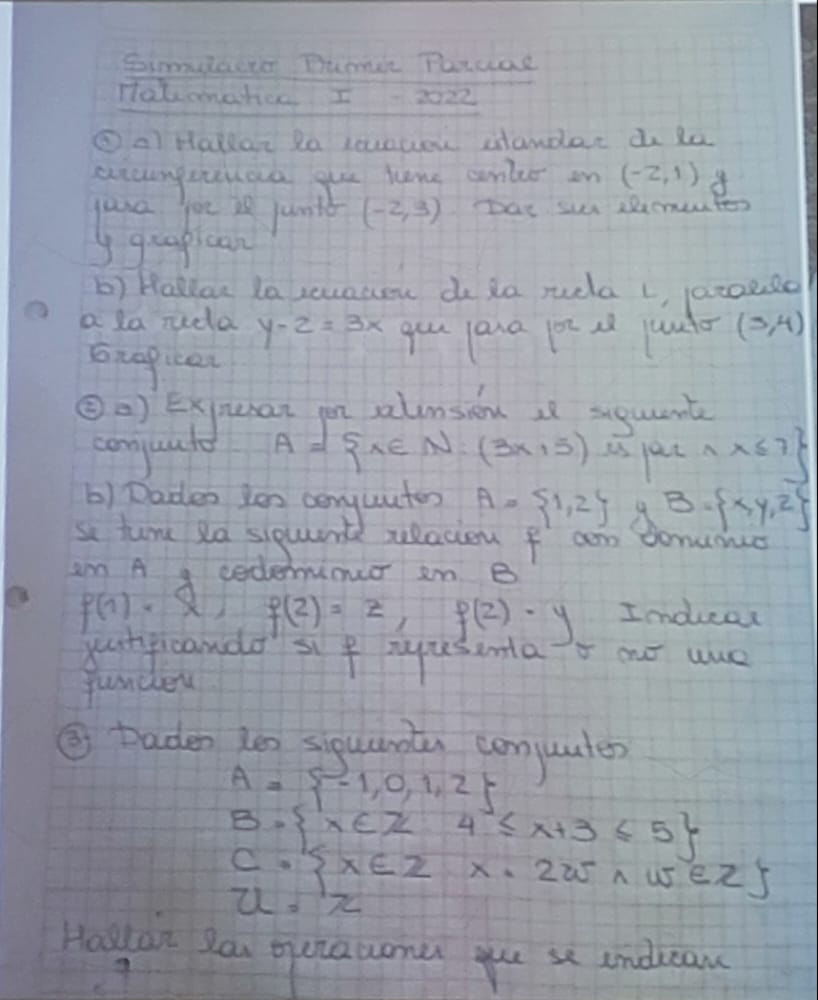 Simulacro Primer Parcial
Matematica I - 2022
① a) Hallar la ecuacion estandar de la
circunferencia que tiene centro en (-2,1) y
pasa por el punto (-2,3). Dar sus elementos
y graficar
b) Hallar la ecuacion de la recta L, paralela
a la recta y-2=3x que pasa por el punto (3,4)
Graficar
② a) Expresar por extensión el siguiente
conjunto A = {x∈N: (3x+5) es par ∧ x≤7}
b) Dados los conjuntos A = {1,2} y B={x,y,z}
se tiene la siguiente relacion f con dominio
en A y codominio en B
f(1)= x, f(2)= z, f(2)= y Indicar
justificando si f representa o no una
funcion
③ Dados los siguientes conjuntos
A = {-1,0,1,2}
B={x∈Z 4≤x+3≤5}
C={x∈Z x=2w ∧ w∈Z}
U=Z
Hallar las operaciones que se indican